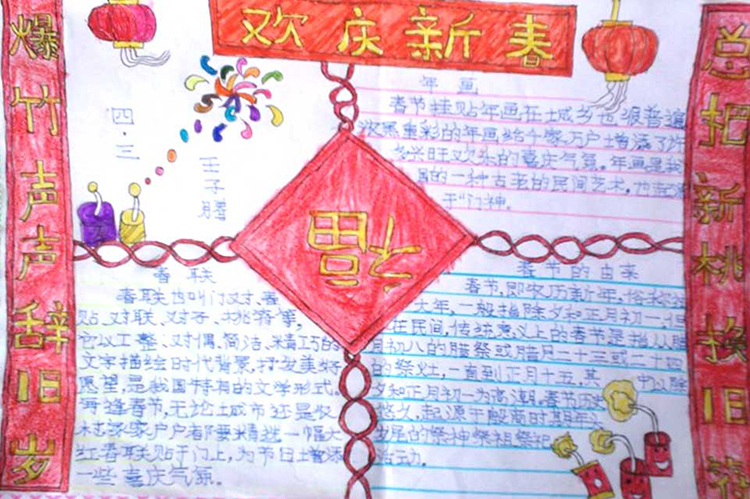 欢庆新春
爆竹声声辞旧岁
总把新桃换旧
四·三
王子腾
福
年画
春节挂贴年画在城乡也很普遍
浓黑重彩的年画给千家万户增添了许
多兴旺欢乐的喜庆气氛。年画是我
国的一种古老的民间艺术,也起源
于门神。
春联
春联也叫门对、春
贴、对联、对子、桃符等,
它以工整、对偶、简洁、精巧的
文字描绘时代背景,抒发美好
愿望,是我国特有的文学形式。
每逢春节,无论城市还是农
村,家家户户都要精选一幅大
红春联贴于门上,为节日增添
一些喜庆气氛。
春节的由来
春节,即农历新年,俗称过
大年,一般指除夕和正月初一。但
在民间,传统意义上的春节是指从腊
月初八的腊祭或腊月二十三或二十四
的祭灶,一直到正月十五,其中以除
夕和正月初一为高潮。春节历史
悠久,起源于殷商时期年
岁尾的祭神祭祖祭祀
活动。